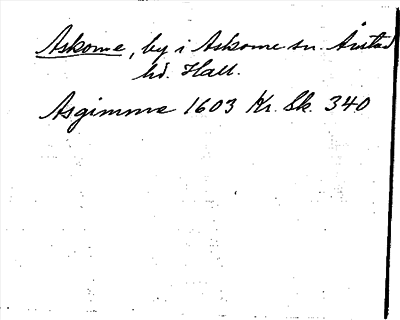 Askome, by i Askome sn. Årstad
hd. Hall.
Asgimme 1603 Kr. Sk. 340